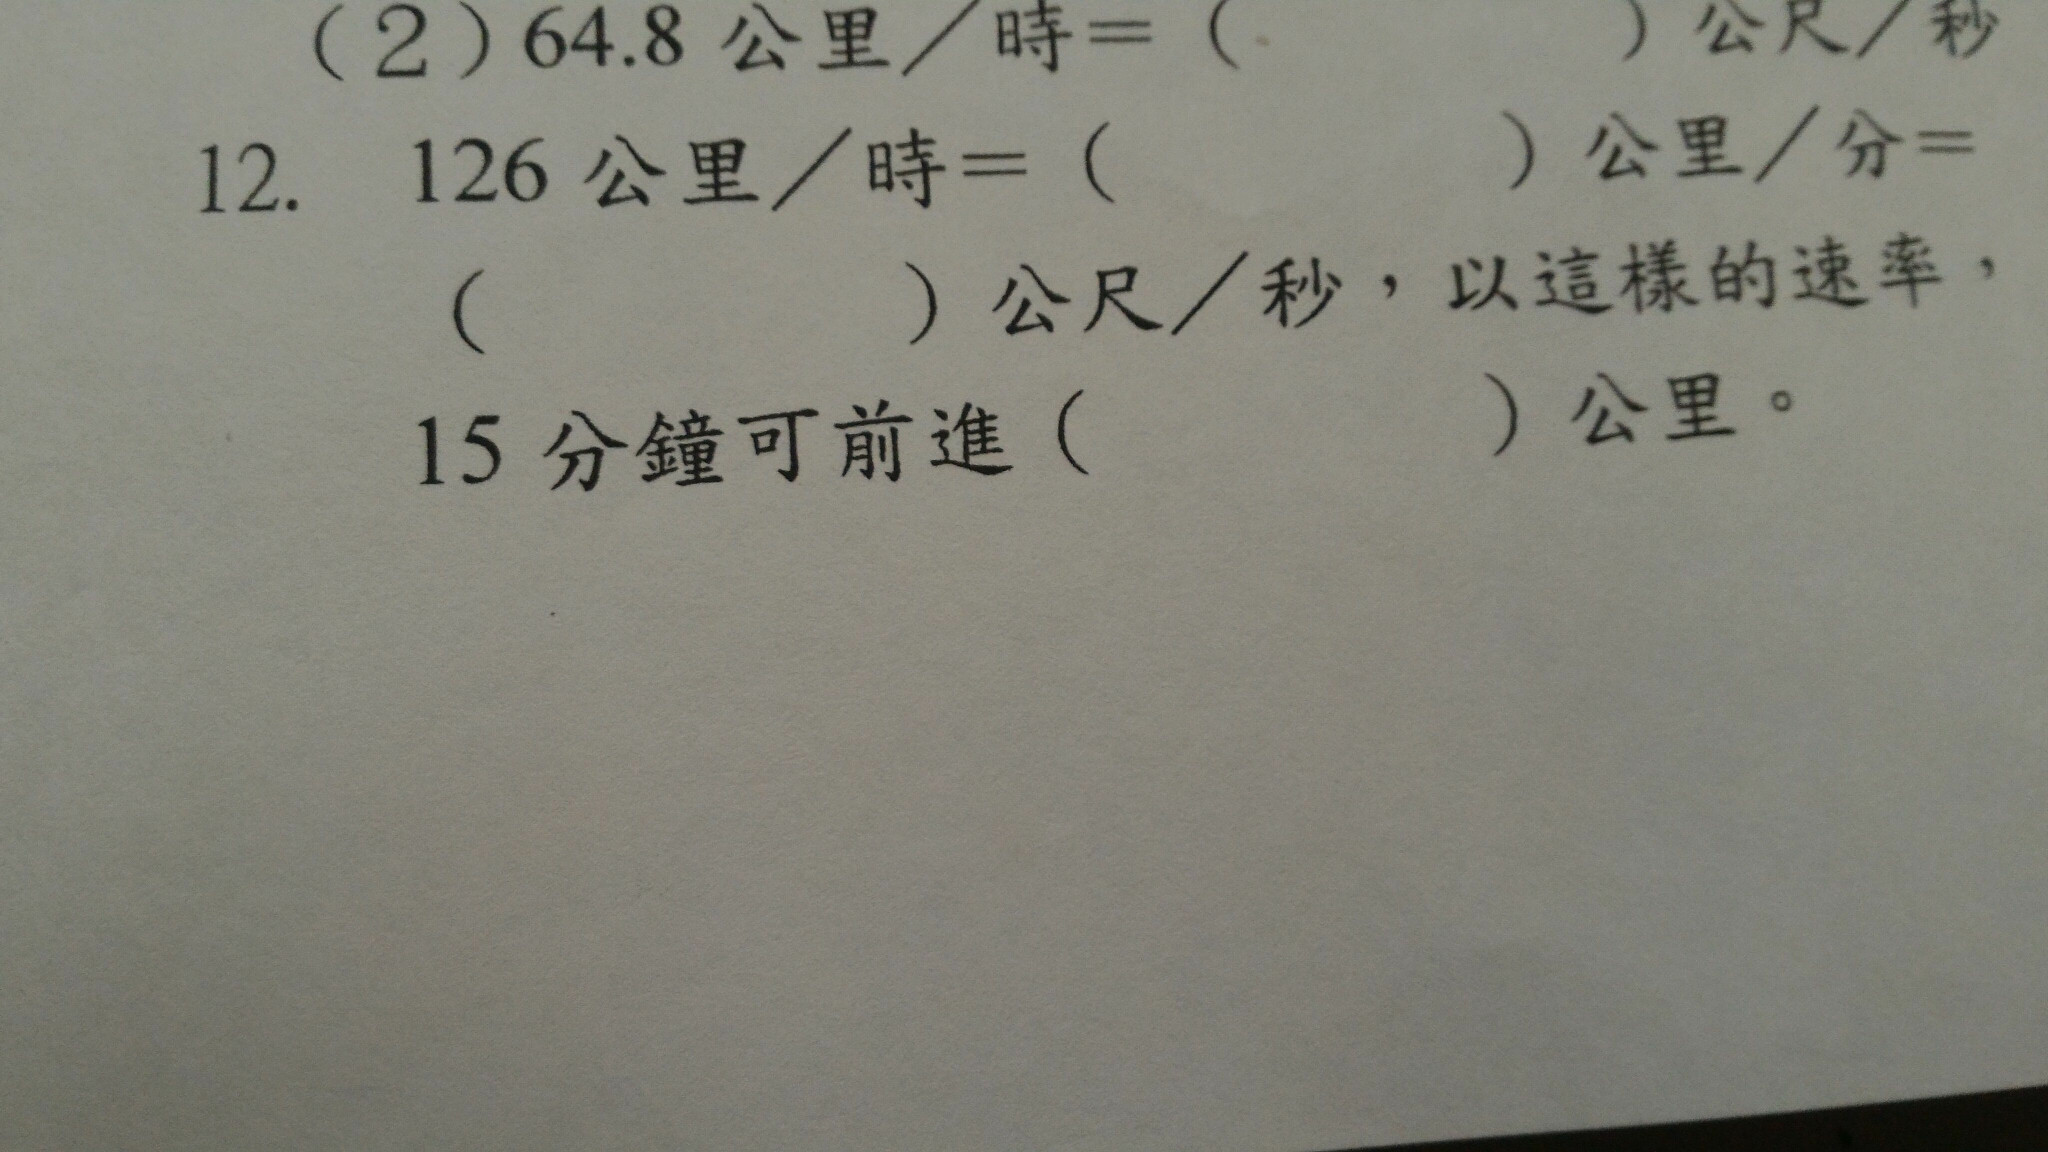 (2)64.8 公里／時＝( ) 公尺／秒
12. 126 公里／時＝( ) 公里／分＝
( ) 公尺／秒，以這樣的速率，
15 分鐘可前進( ) 公里。